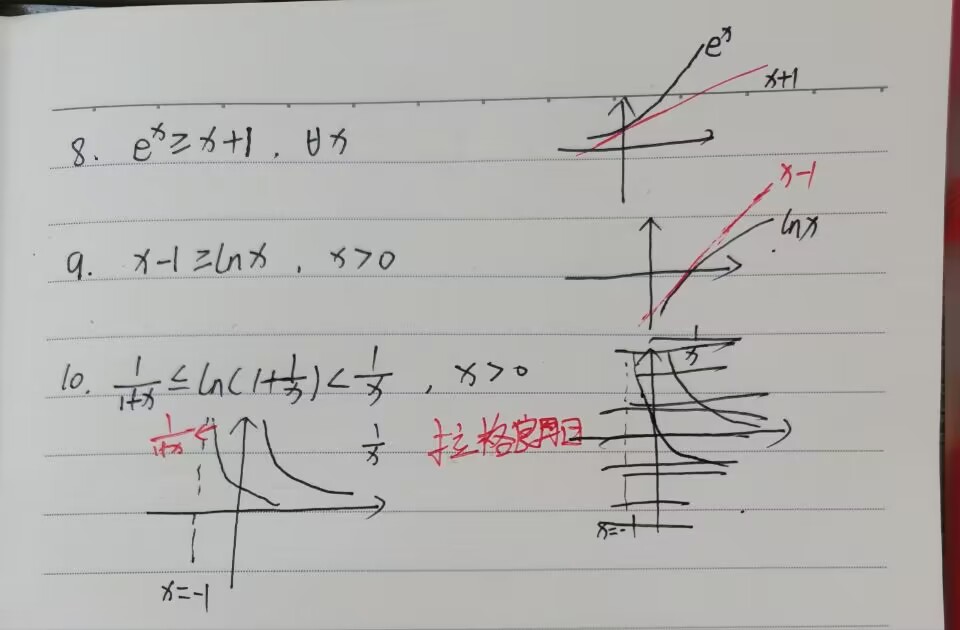 8. eˣ ≥ x+1 , ∀x
eˣ
x+1
9. x-1 ≥ lnx , x>0
x-1
lnx
10. 1/(1+x) ≤ ln(1+1/x) < 1/x , x>0
1/x
1/(1+x)
1/x
拉格
x=-1
x=-1